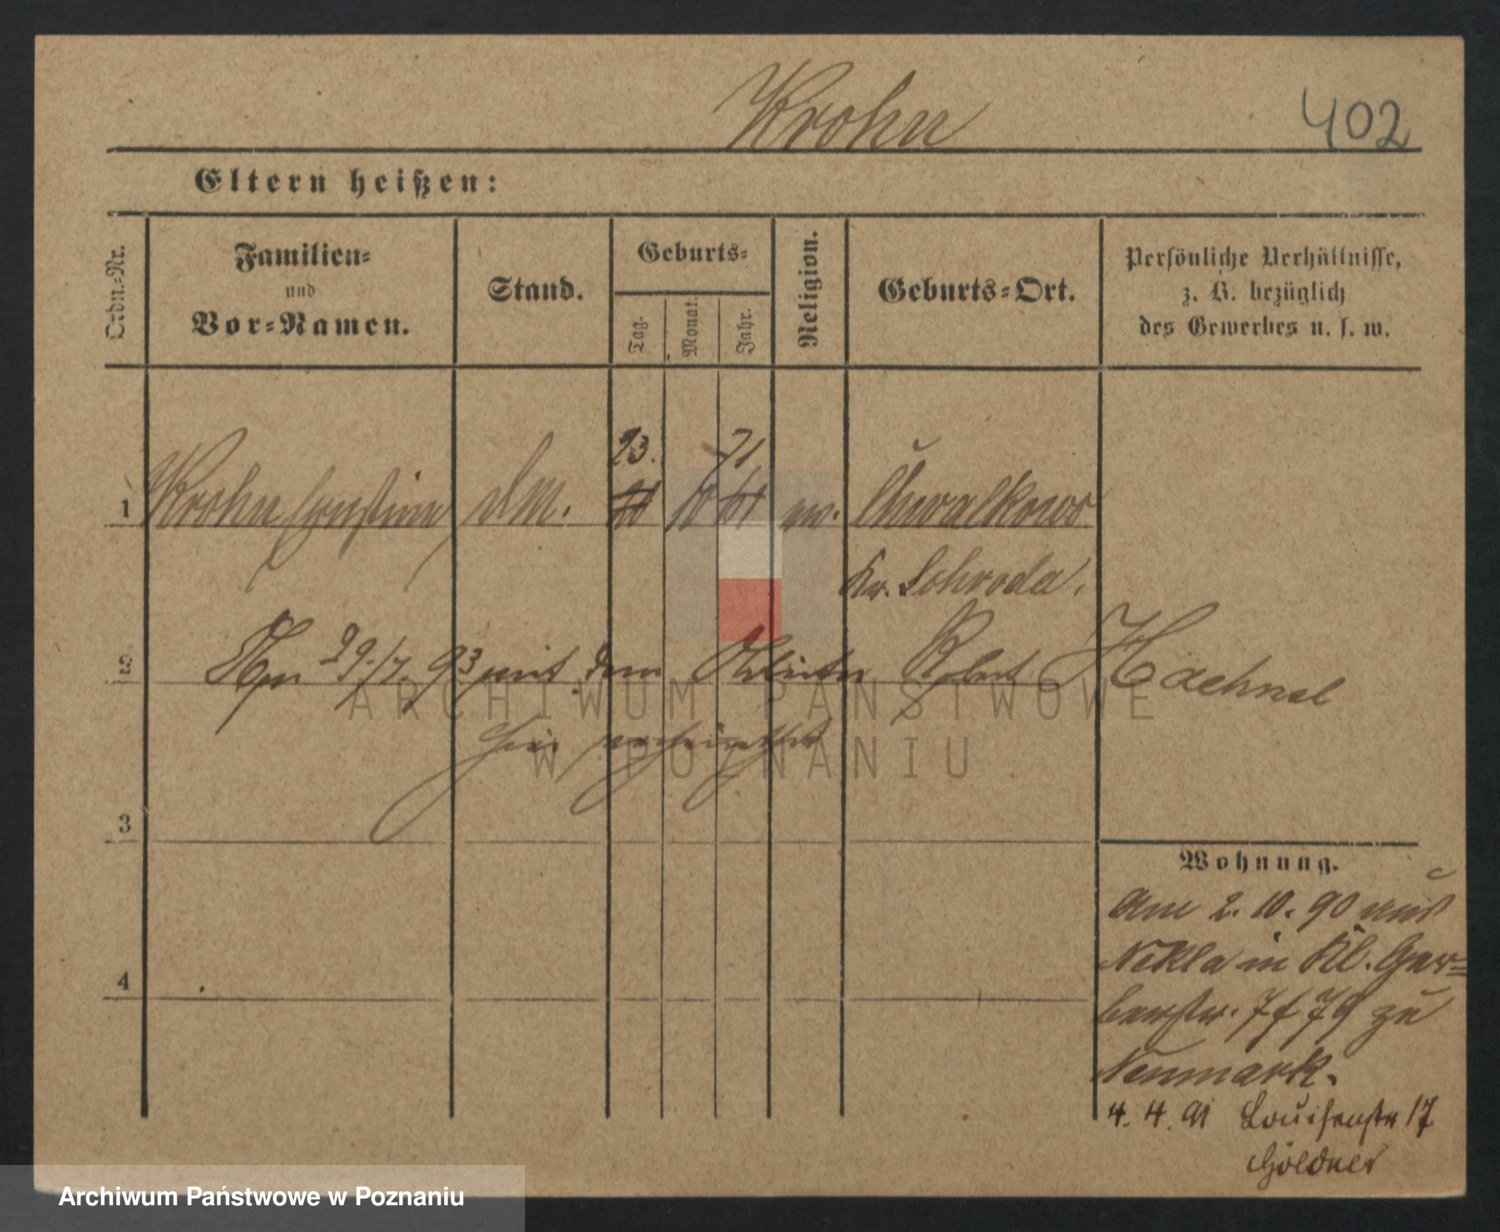 Krohn 402
Eltern heißen:
Ordn.-Nr.
Familien-
und
Vor-Namen.
Stand.
Geburts-
Tag.
Monat.
Jahr.
Religion.
Geburts-Ort.
Persönliche Verhältnisse,
z. B. bezüglich
des Gewerbes u. s. w.
23. 71
1 Krohn Ernstine dM. 10 ev. Chwalkowo
Kr. Schroda.
2 Am 29./7. 93 mit dem Arbeiter Robert Haehnel
hier verheirathet
3
Wohnung.
Am 2. 10. 90 aus
Nekla in Kl. Ger-
berstr. 7 f 79 zu
Neumark.
4
4. 4. 91 Louisenstr 17
Göldner
ARCHIWUM PAŃSTWOWE
W POZNANIU
Archiwum Państwowe w Poznaniu